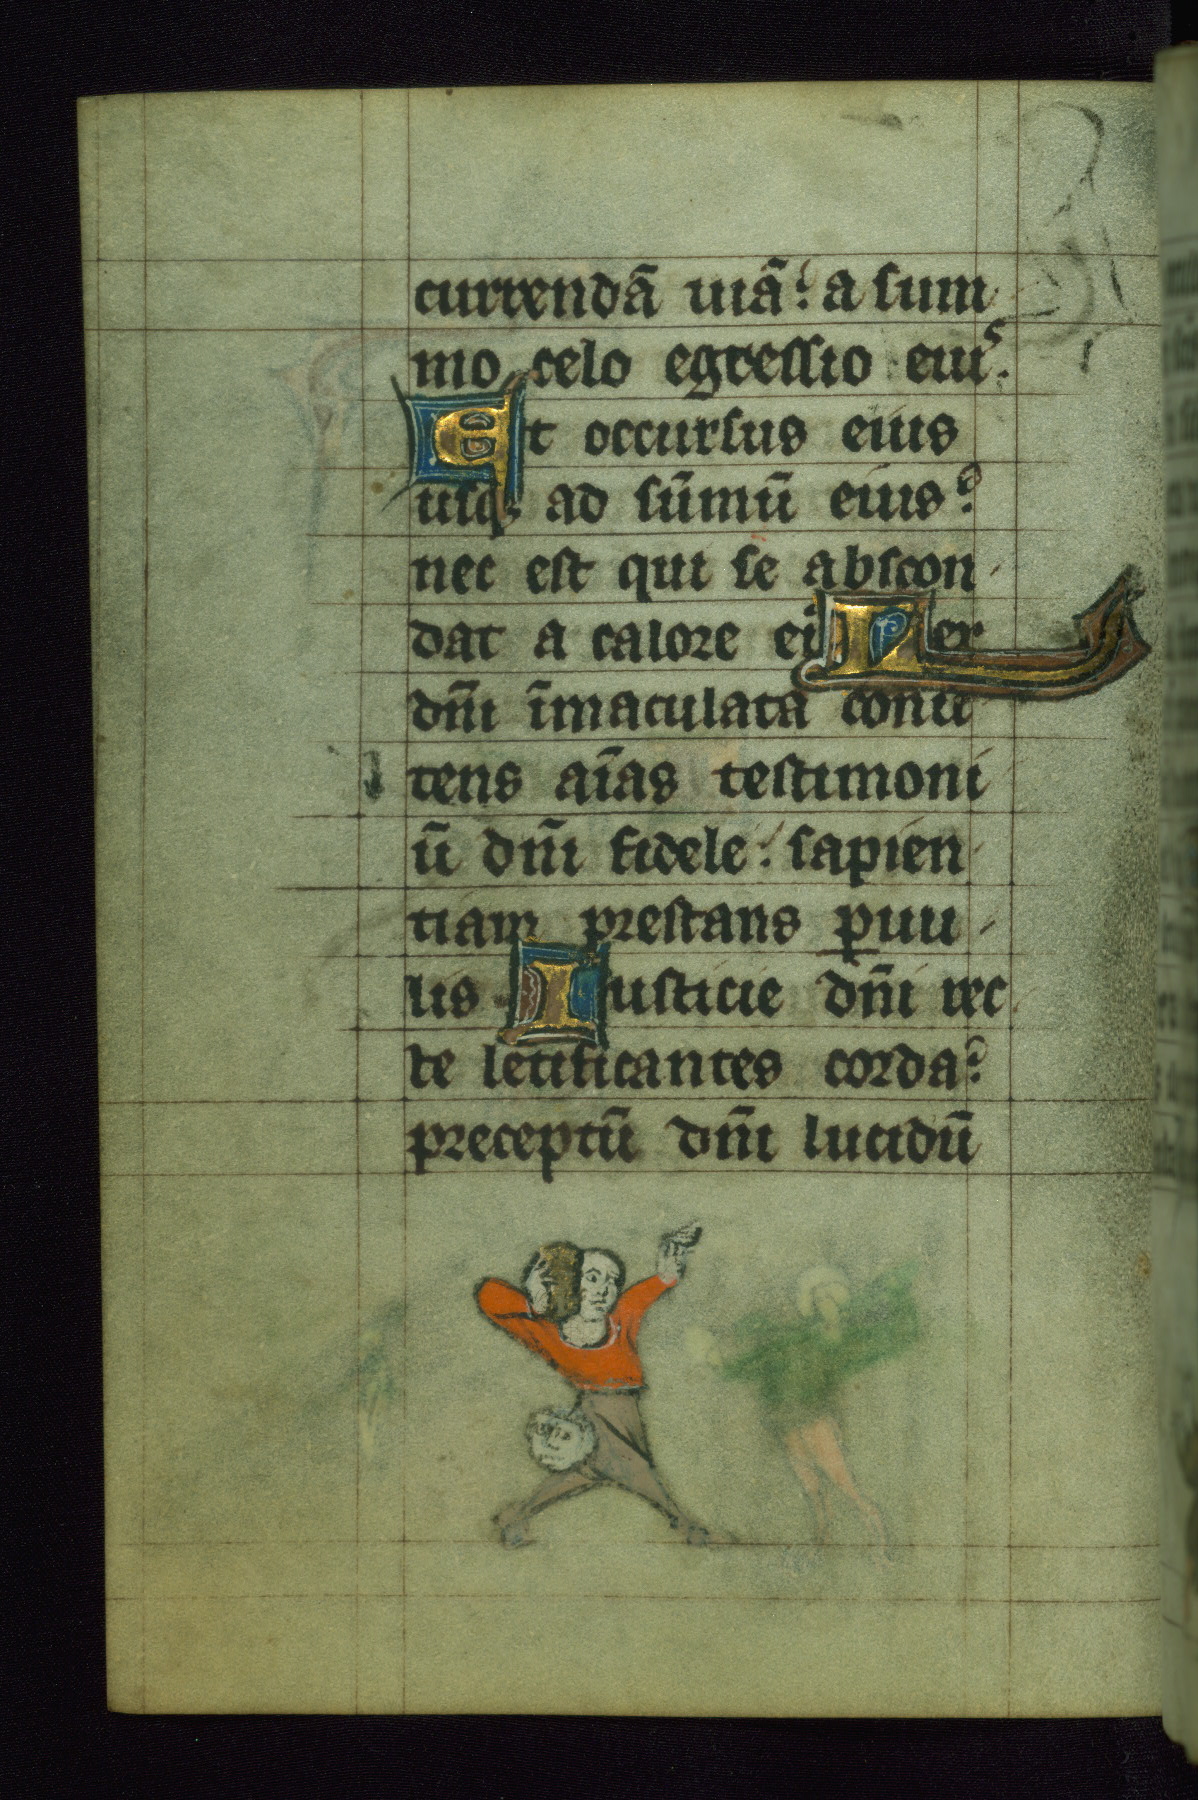 currendā uiā: a sum
mo celo egressio eius.
Et occursus eius
usq; ad sūmū eius:
nec est qui se abscon
dat a calore ei Lex
dn̄i īmaculata conu
tens aīas testimoni
ū dn̄i fidele: sapien
tiam prestans puu
lis Iusticie dn̄i rec
te letificantes corda:
preceptū dn̄i lucidū